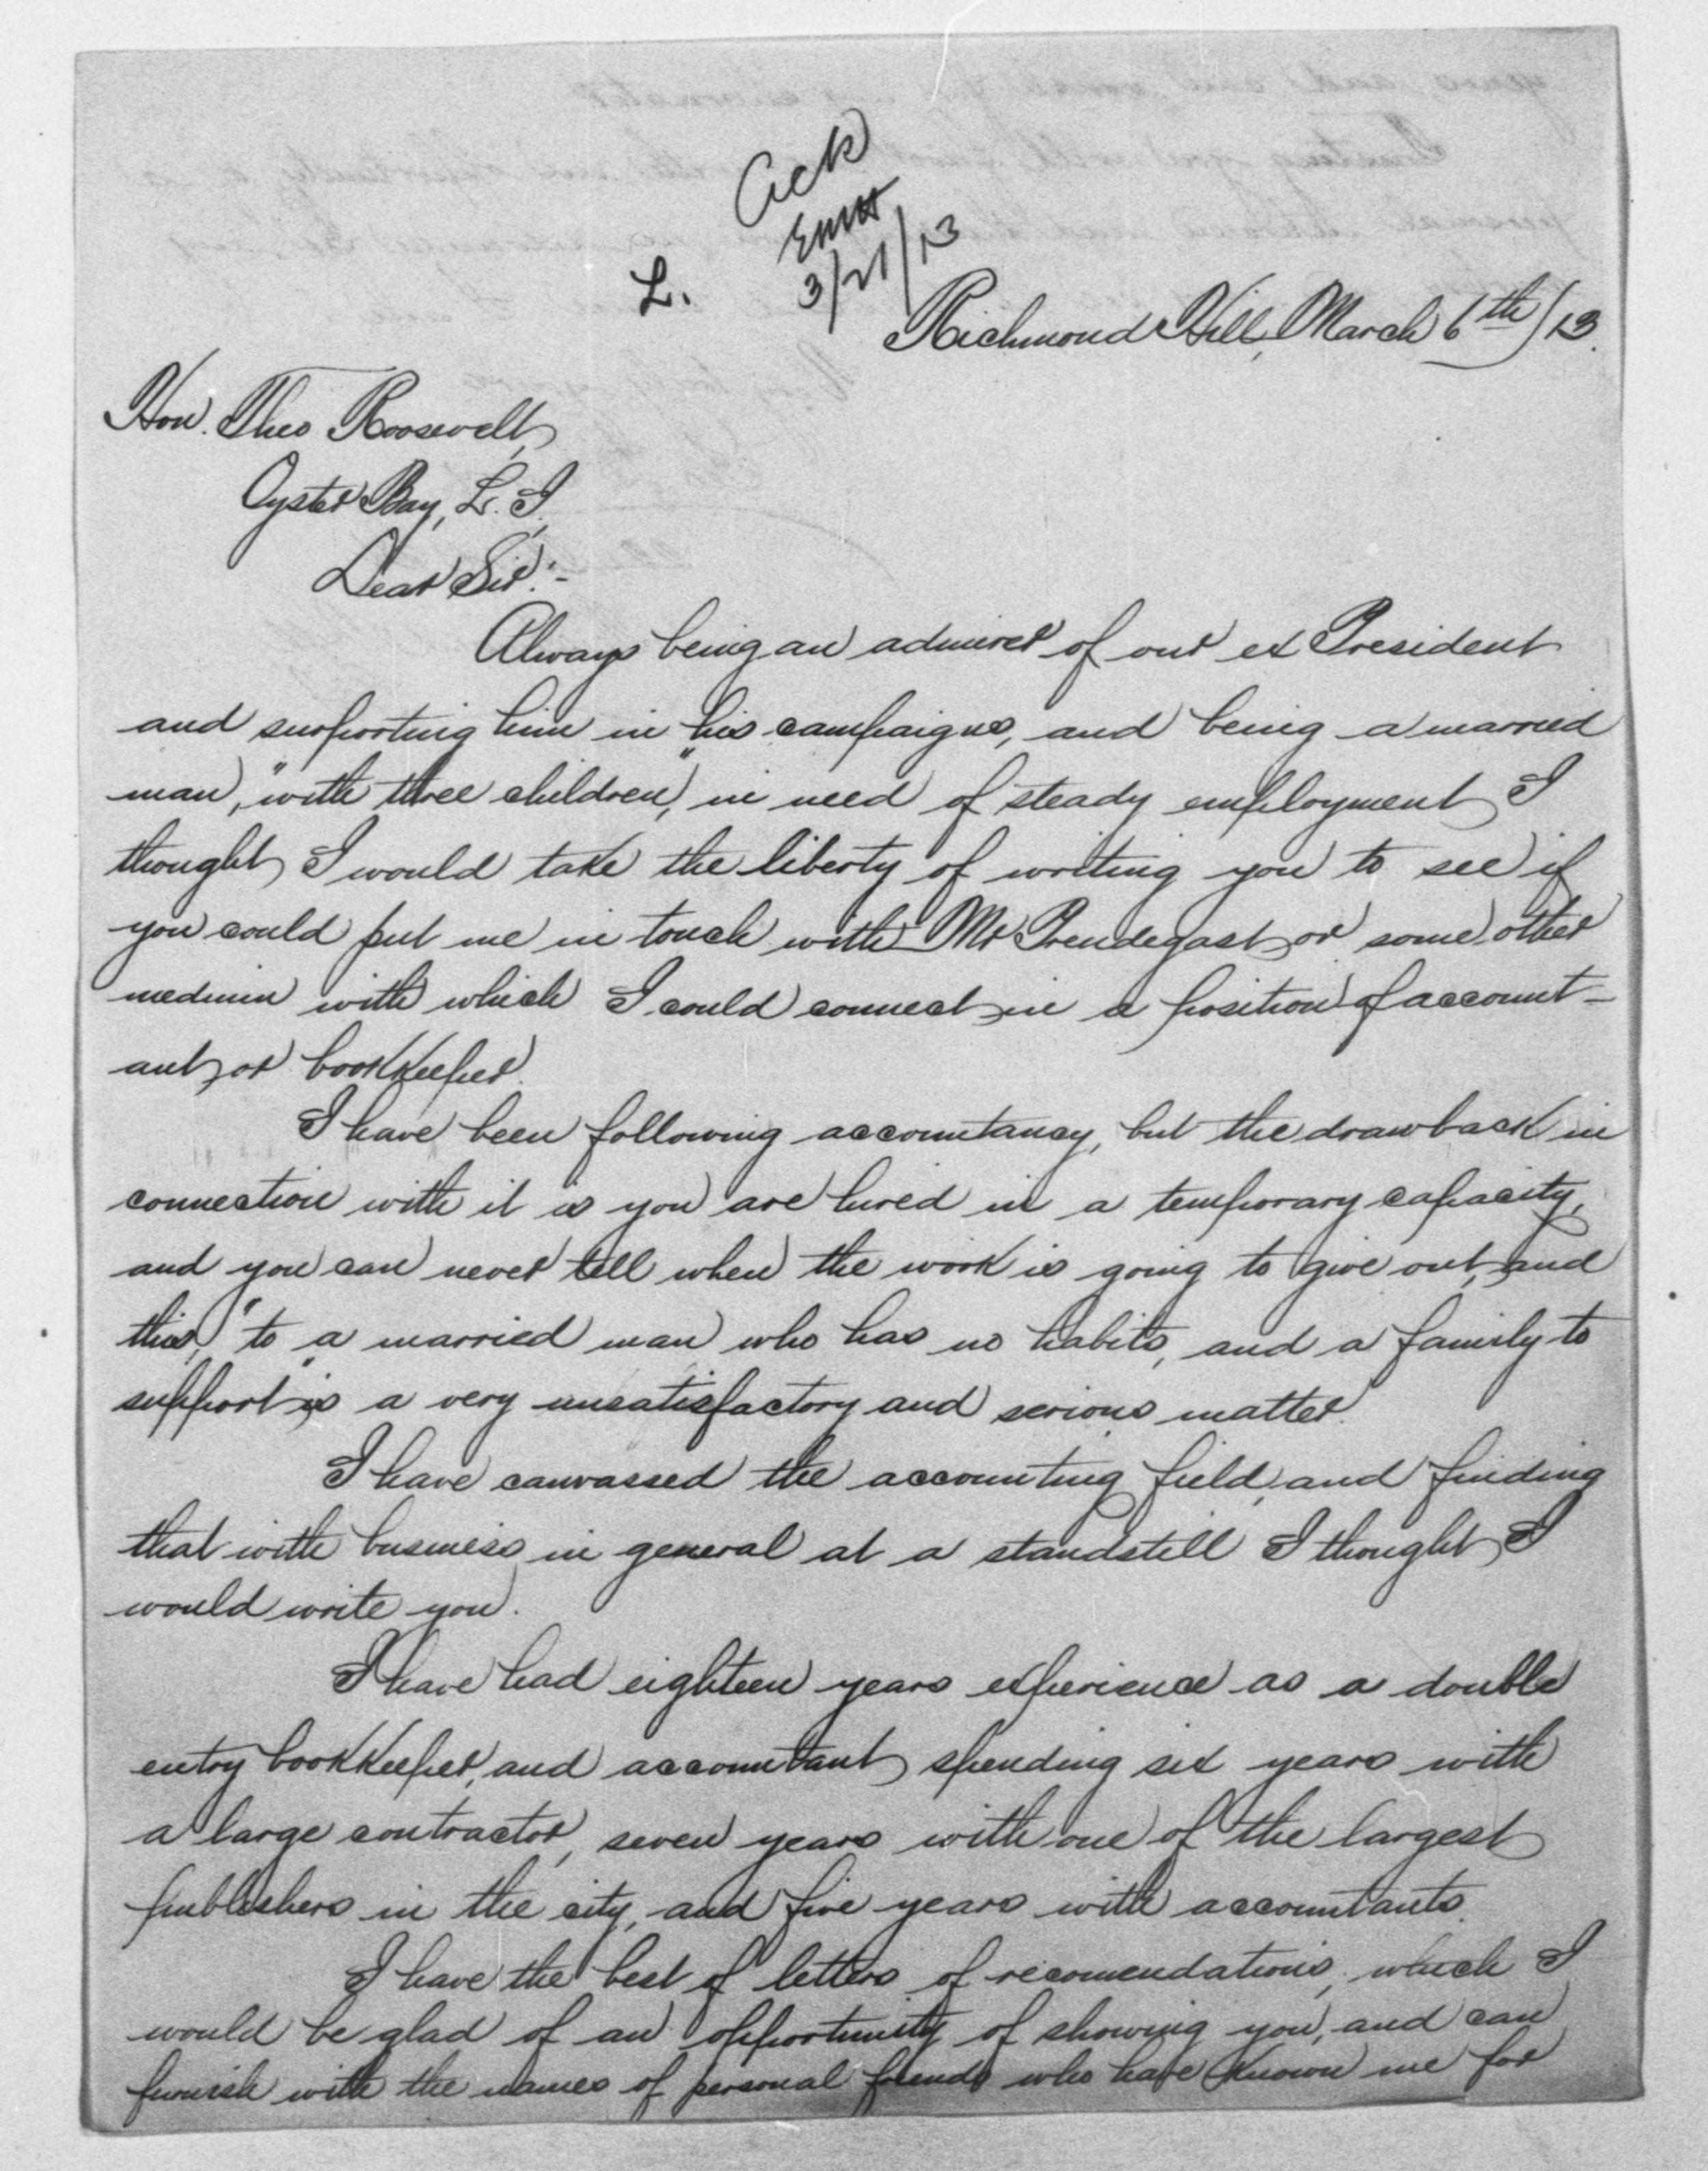 Ack
3/21/13
L.
Richmond Hill, March 6th/13.
Hon. Theo Roosevelt,
Oyster Bay, L. I.,
Dear Sir:-
Always being an admirer of our ex President
and supporting him in his campaigns, and being a married
man, "with three children," in need of steady employment I
thought I would take the liberty of writing you to see if
you could put me in touch with Mr Prendegast or some other
medium with which I could connect in a position of account-
ant or bookkeeper.
I have been following accountancy, but the drawback in
connection with it is you are hired in a temporary capacity,
and you can never tell when the work is going to give out, and
this, "to a married man who has no habits, and a family to
support" is a very unsatisfactory and serious matter.
I have canvassed the accounting field, and finding
that with business in general at a standstill I thought I
would write you.
I have had eighteen years experience as a double
entry bookkeeper, and accountant spending six years with
a large contractor, seven years with one of the largest
publishers in the city, and five years with accountants.
I have the best of letters of recomendations, which I
would be glad of an opportunity of showing you, and can
furnish with the names of personal friends who have known me for